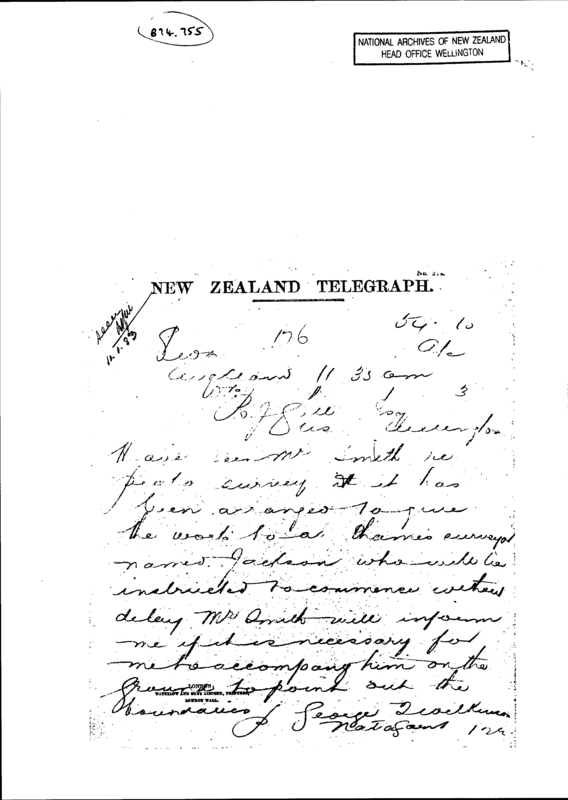 874.755
NATIONAL ARCHIVES OF NEW ZEALAND
HEAD OFFICE WELLINGTON
NEW ZEALAND TELEGRAPH.
seen
11.1.83
176 54. 10
Auckland 11 33 am
R J Gill Esq
Wellington
Have seen Mr Smith re
survey it has
been arranged to give
the work to a Thames surveyor
named Jackson who will be
instructed to commence without
delay Mr Smith will inform
me if it is necessary for
me to accompany him on the
ground to point out the
boundaries
George T Wilkinson
LONDON:
WATERLOW AND SONS LIMITED, PRINTERS,
LONDON WALL.